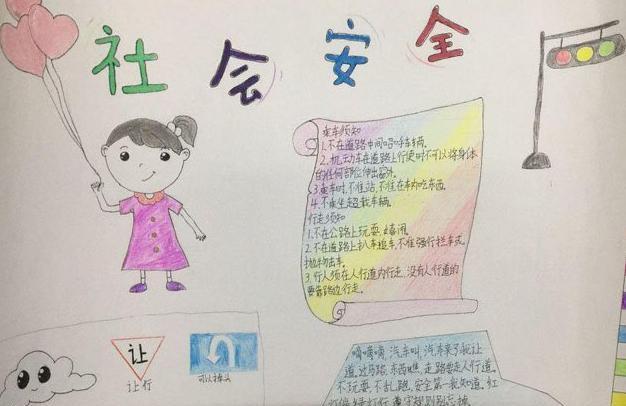 社会安全
乘车须知
1.不在道路中间招呼车辆。
2.机动车在道路上行使时不可以将身体
的任何部位伸出窗外。
3.乘车时,不准站,不准在车内吃东西。
4.不乘坐超载车辆。
行走须知
1.不在公路上玩耍、嬉闹。
2.不在道路上扒车追车,不准强行拦车或
抛物击车。
3.行人须在人行道内行走,没有人行道的
要靠路边行走。
让
让行
可以掉头
嘀嘀嘀,汽车叫,汽车来了我让
道,过马路,东西瞧,走路要走人行道。
不玩耍,不乱跑,安全第一我知道,红
灯停绿灯行